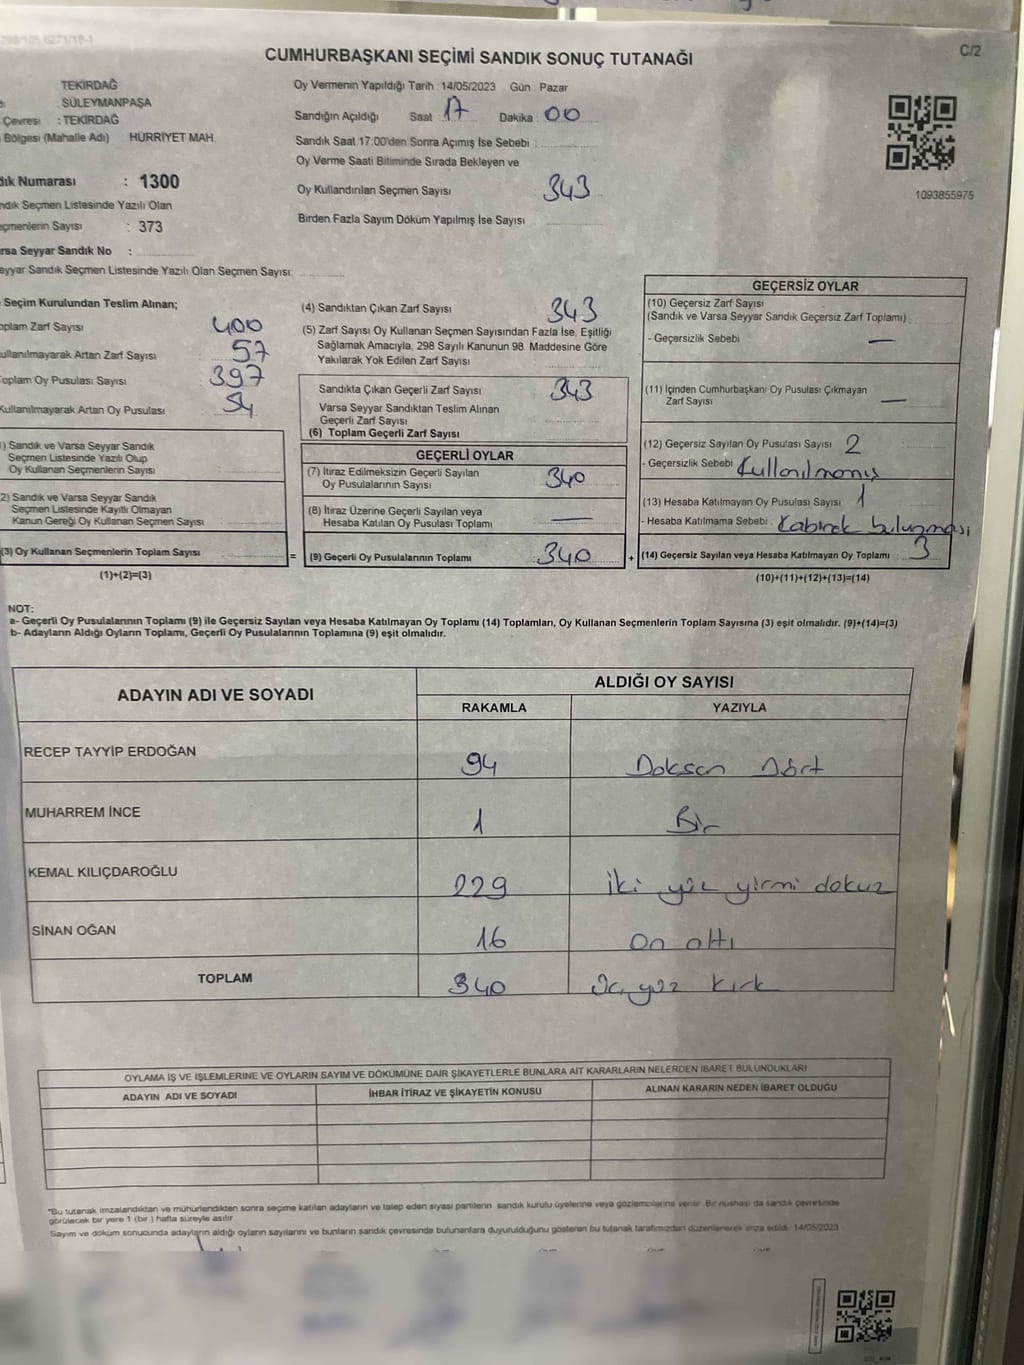 CUMHURBAŞKANI SEÇİMİ SANDIK SONUÇ TUTANAĞI
C/2
TEKİRDAĞ
SÜLEYMANPAŞA
Çevresi : TEKİRDAĞ
Bölgesi (Mahalle Adı) HÜRRİYET MAH
Numarası : 1300
Seçmen Listesinde Yazılı Olan
Sayısı : 373
Seyyar Sandık No :
Seyyar Sandık Seçmen Listesinde Yazılı Olan Seçmen Sayısı:
Oy Vermenin Yapıldığı Tarih : 14/05/2023 Gün : Pazar
Sandığın Açıldığı Saat 17 Dakika 00
Sandık Saat 17:00'den Sonra Açımış İse Sebebi :
Oy Verme Saati Bitiminde Sırada Bekleyen ve
Oy Kullandırılan Seçmen Sayısı 343
Birden Fazla Sayım Döküm Yapılmış İse Sayısı
1093855975
Seçim Kurulundan Teslim Alınan;
Zarf Sayısı 400
Artan Zarf Sayısı 57
Oy Pusulası Sayısı 397
Artan Oy Pusulası 54
Sandık ve Varsa Seyyar Sandık
Seçmen Listesinde Yazılı Olup
Oy Kullanan Seçmenlerin Sayısı
2) Sandık ve Varsa Seyyar Sandık
Seçmen Listesinde Kayıtlı Olmayan
Kanun Gereği Oy Kullanan Seçmen Sayısı
(3) Oy Kullanan Seçmenlerin Toplam Sayısı
(1)+(2)=(3)
(4) Sandıktan Çıkan Zarf Sayısı 343
(5) Zarf Sayısı Oy Kullanan Seçmen Sayısından Fazla İse, Eşitliği
Sağlamak Amacıyla, 298 Sayılı Kanunun 98. Maddesine Göre
Yakılarak Yok Edilen Zarf Sayısı
Sandıkta Çıkan Geçerli Zarf Sayısı 343
Varsa Seyyar Sandıktan Teslim Alınan
Geçerli Zarf Sayısı
(6) Toplam Geçerli Zarf Sayısı
GEÇERLİ OYLAR
(7) İtiraz Edilmeksizin Geçerli Sayılan
Oy Pusulalarının Sayısı 340
(8) İtiraz Üzerine Geçerli Sayılan veya
Hesaba Katılan Oy Pusulası Toplamı —
= (9) Geçerli Oy Pusulalarının Toplamı 340 +
GEÇERSİZ OYLAR
(10) Geçersiz Zarf Sayısı
(Sandık ve Varsa Seyyar Sandık Geçersiz Zarf Toplamı)
- Geçersizlik Sebebi —
(11) İçinden Cumhurbaşkanı Oy Pusulası Çıkmayan
Zarf Sayısı —
(12) Geçersiz Sayılan Oy Pusulası Sayısı 2
- Geçersizlik Sebebi Kullanılmamış
(13) Hesaba Katılmayan Oy Pusulası Sayısı 1
- Hesaba Katılmama Sebebi
(14) Geçersiz Sayılan veya Hesaba Katılmayan Oy Toplamı 3
(10)+(11)+(12)+(13)=(14)
NOT:
a- Geçerli Oy Pusulalarının Toplamı (9) ile Geçersiz Sayılan veya Hesaba Katılmayan Oy Toplamı (14) Toplamları, Oy Kullanan Seçmenlerin Toplam Sayısına (3) eşit olmalıdır. (9)+(14)=(3)
b- Adayların Aldığı Oyların Toplamı, Geçerli Oy Pusulalarının Toplamına (9) eşit olmalıdır.
ADAYIN ADI VE SOYADI ALDIĞI OY SAYISI
RAKAMLA YAZIYLA
RECEP TAYYİP ERDOĞAN 94 Doksan Dört
MUHARREM İNCE 1 Bir
KEMAL KILIÇDAROĞLU 229 iki yüz yirmi dokuz
SİNAN OĞAN 16 On altı
TOPLAM 340 Üç yüz kırk
OYLAMA İŞ VE İŞLEMLERİNE VE OYLARIN SAYIM VE DÖKÜMÜNE DAİR ŞİKAYETLERLE BUNLARA AİT KARARLARIN NELERDEN İBARET BULUNDUKLARI
ADAYIN ADI VE SOYADI İHBAR İTİRAZ VE ŞİKAYETİN KONUSU ALINAN KARARIN NEDEN İBARET OLDUĞU
*Bu tutanak imzalandıktan ve mühürlendikten sonra seçime katılan adayların ve talep eden siyasi partilerin sandık kurulu üyelerine veya gözlemcilerine verilir. Bir nüshası da sandık çevresinde
görülecek bir yere 1 (bir) hafta süreyle asılır.
Sayım ve döküm sonucunda adayların aldığı oyların sayılarını ve bunların sandık çevresinde bulunanlara duyurulduğunu gösteren bu tutanak tarafımızdan düzenlenerek imza edildi. 14/05/2023